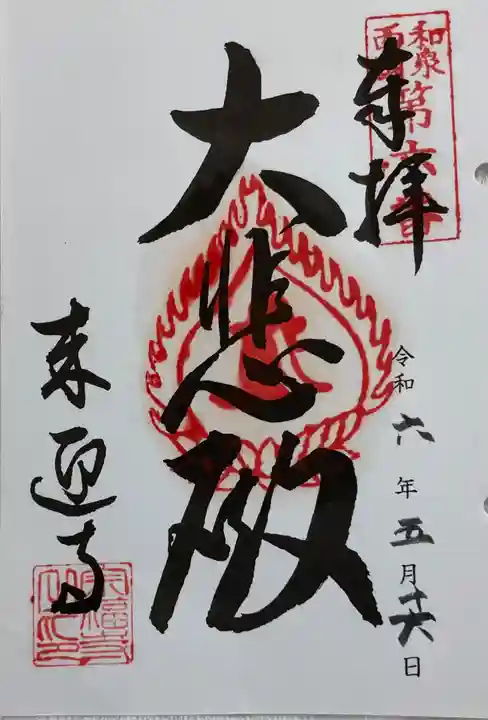 和泉
西国
第六番
奉拝
大悲殿
令和六年五月十六日
来迎寺